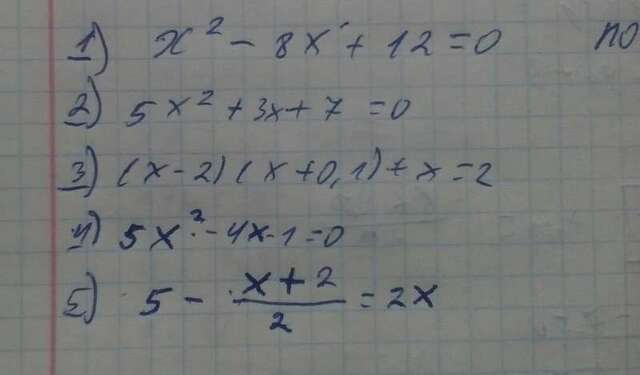 1) x² - 8x + 12 = 0 по
2) 5x² + 3x + 7 = 0
3) (x - 2)(x + 0,1) + x = 2
4) 5x² - 4x - 1 = 0
5) 5 - (x + 2)/2 = 2x